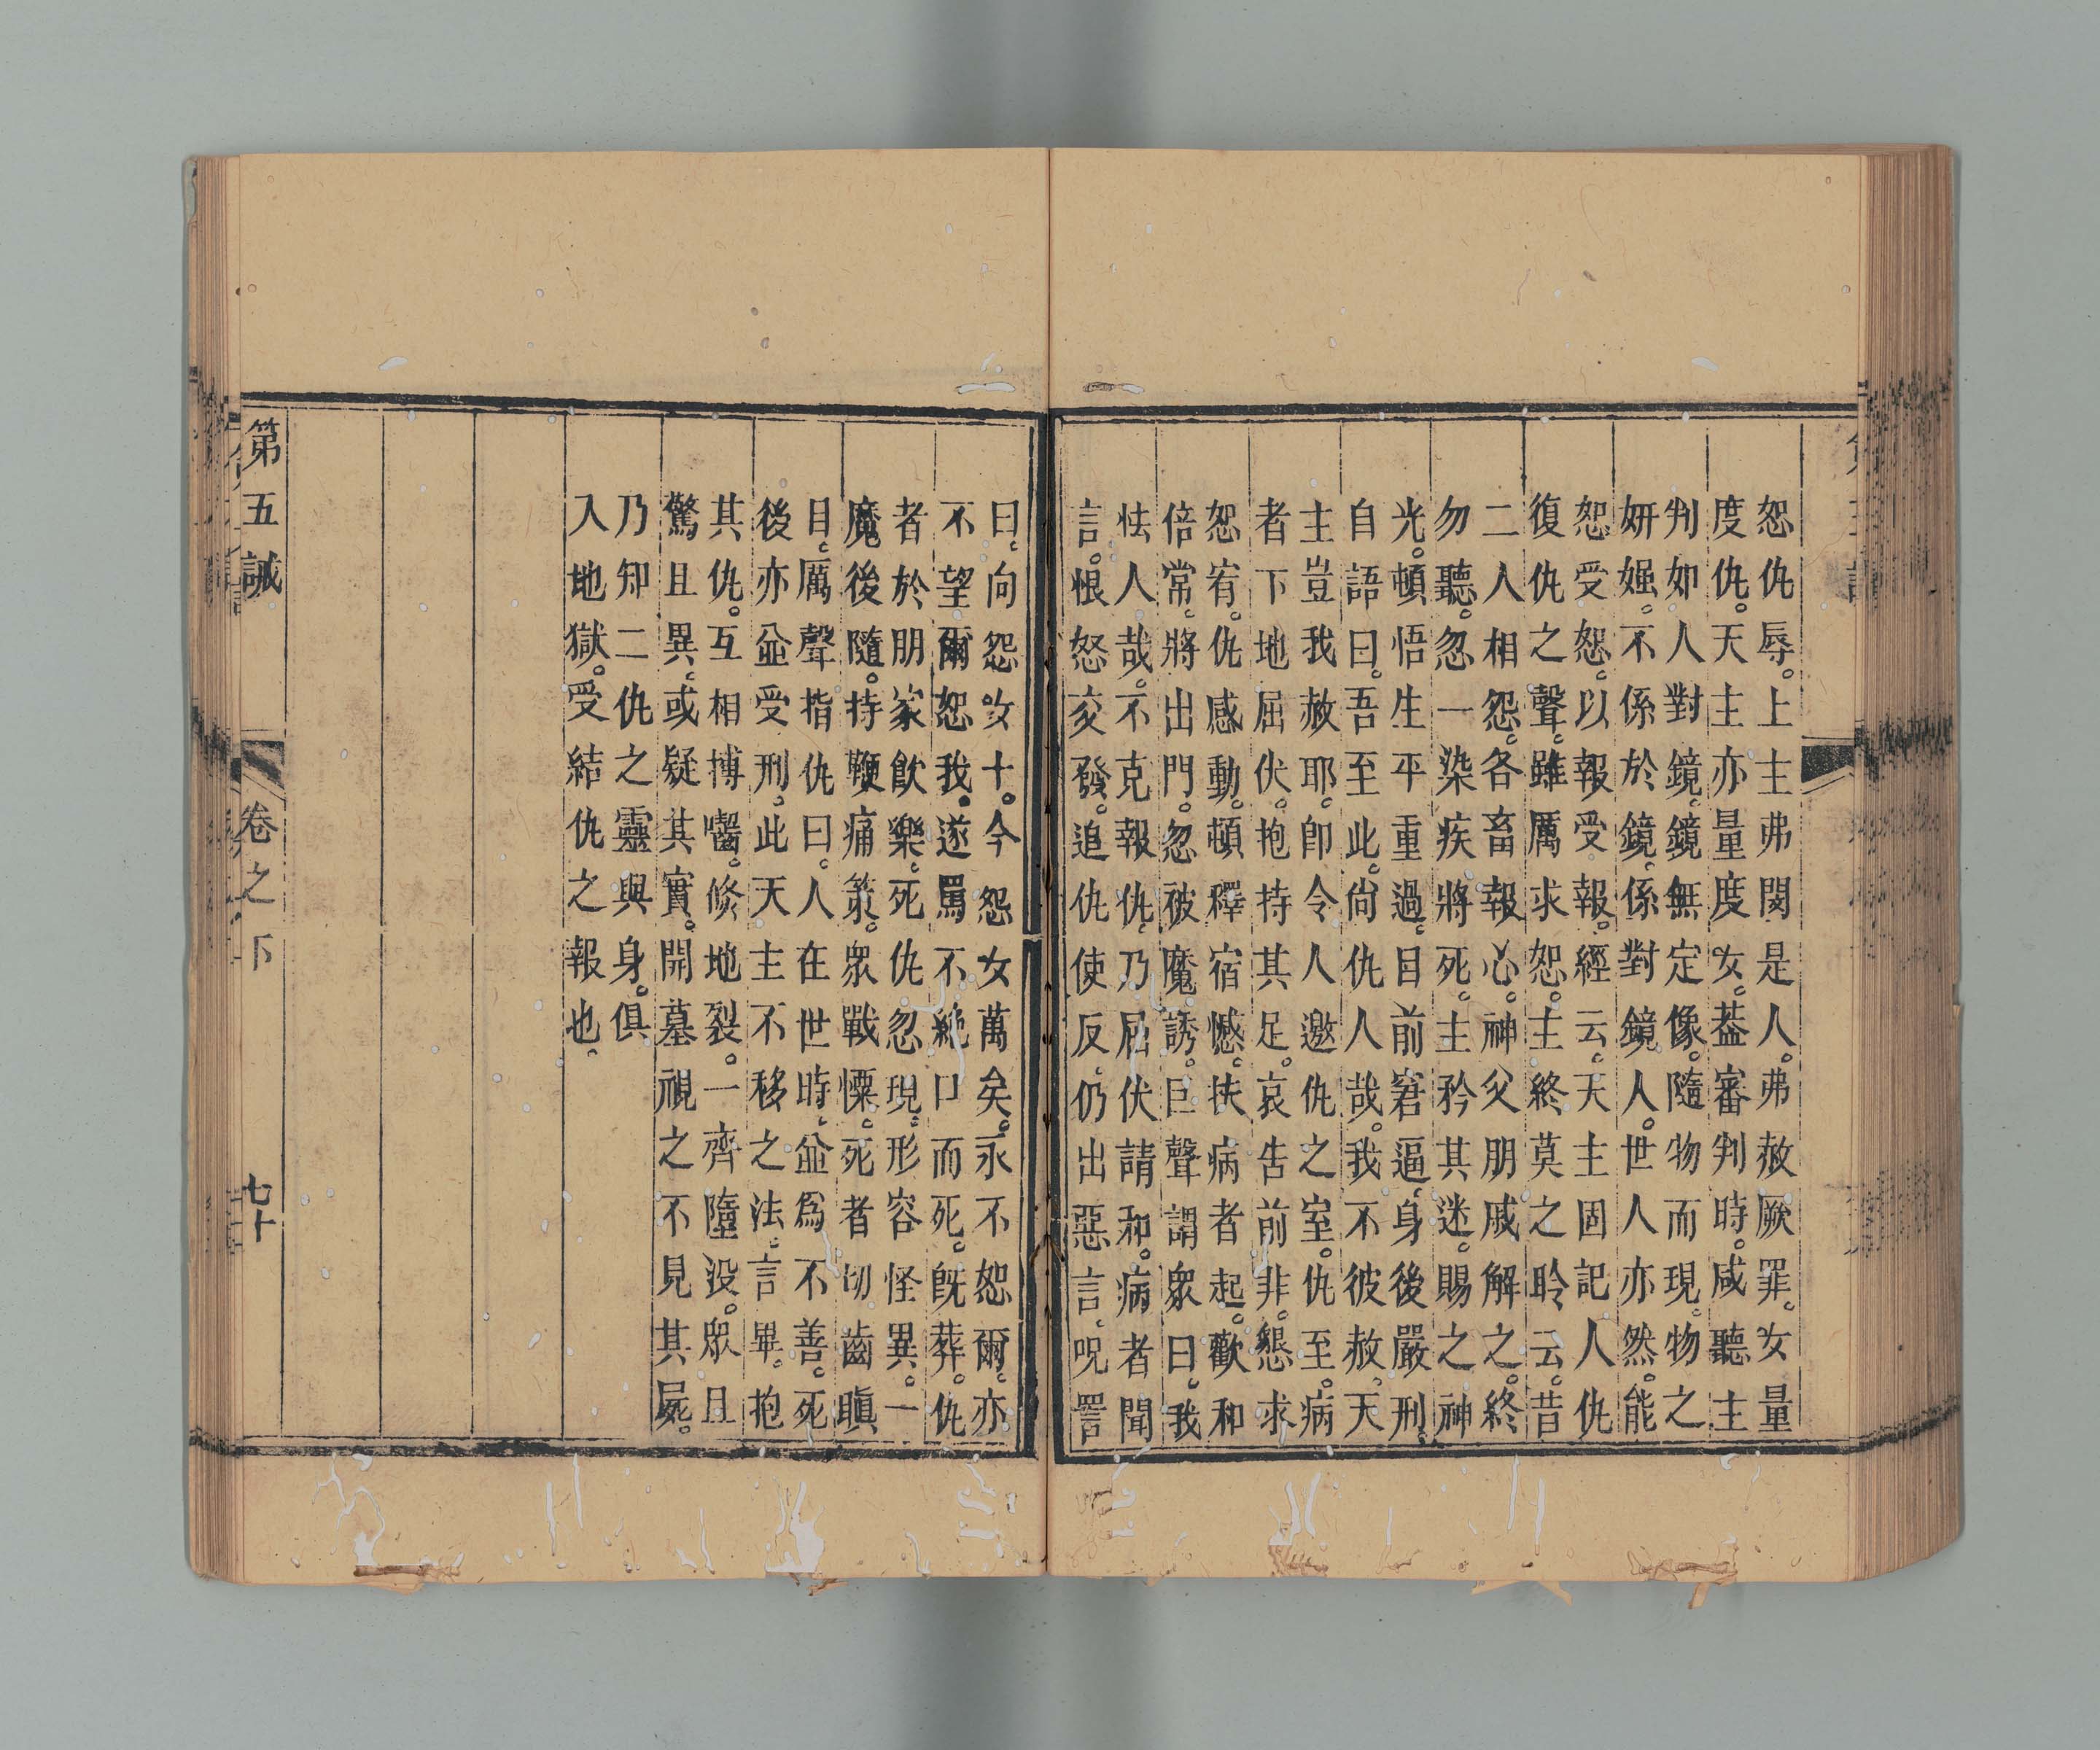 恕仇辱。上主弗閔是人。弗赦厥罪。女量
度仇。天主亦量度女。葢審判時。咸聽主
判如人對鏡。鏡無定像。隨物而現。物之
妍媸。不係於鏡。係對鏡人。世人亦然。能
恕受恕。以報受報。經云。天主固記人仇
復仇之聲。雖厲求恕。主終莫之聆云。昔
二人相怨。各畜報心。神父朋戚解之。終
勿聽。忽一染疾將死。主矜其迷。賜之神
光。頓悟生平重過。目前窘逼。身後嚴刑。
自語曰。吾至此。尙仇人哉。我不彼赦。天
主豈我赦耶。卽令人邀仇之室。仇至。病
者下地屈伏。抱持其足。哀吿前非。懇求
恕宥。仇感動。頓釋宿憾。扶病者起。歡和
倍常。將出門。忽被魔誘。巨聲謂衆曰。我
怯人哉。不克報仇。乃屈伏請和。病者聞
言。恨怒交發。追仇使反。仍出惡言。呪詈
曰。向怨汝十。今怨女萬矣。永不恕爾。亦
不望爾恕我。遂罵不絶口而死。旣葬。仇
者於朋家飮樂。死仇忽現。形容怪異。一
魔後隨。持鞭痛策。衆戰慄。死者切齒瞋
目。厲聲指仇曰。人在世時。並爲不善。死
後亦並受刑。此天主不移之法。言畢。抱
其仇。互相搏嚙。倏地裂。一齊墮沒。衆且
驚且異。或疑其實。開墓視之不見其屍。
乃知二仇之靈與身。俱
入地獄。受結仇之報也。
第五誡
卷之下
七十